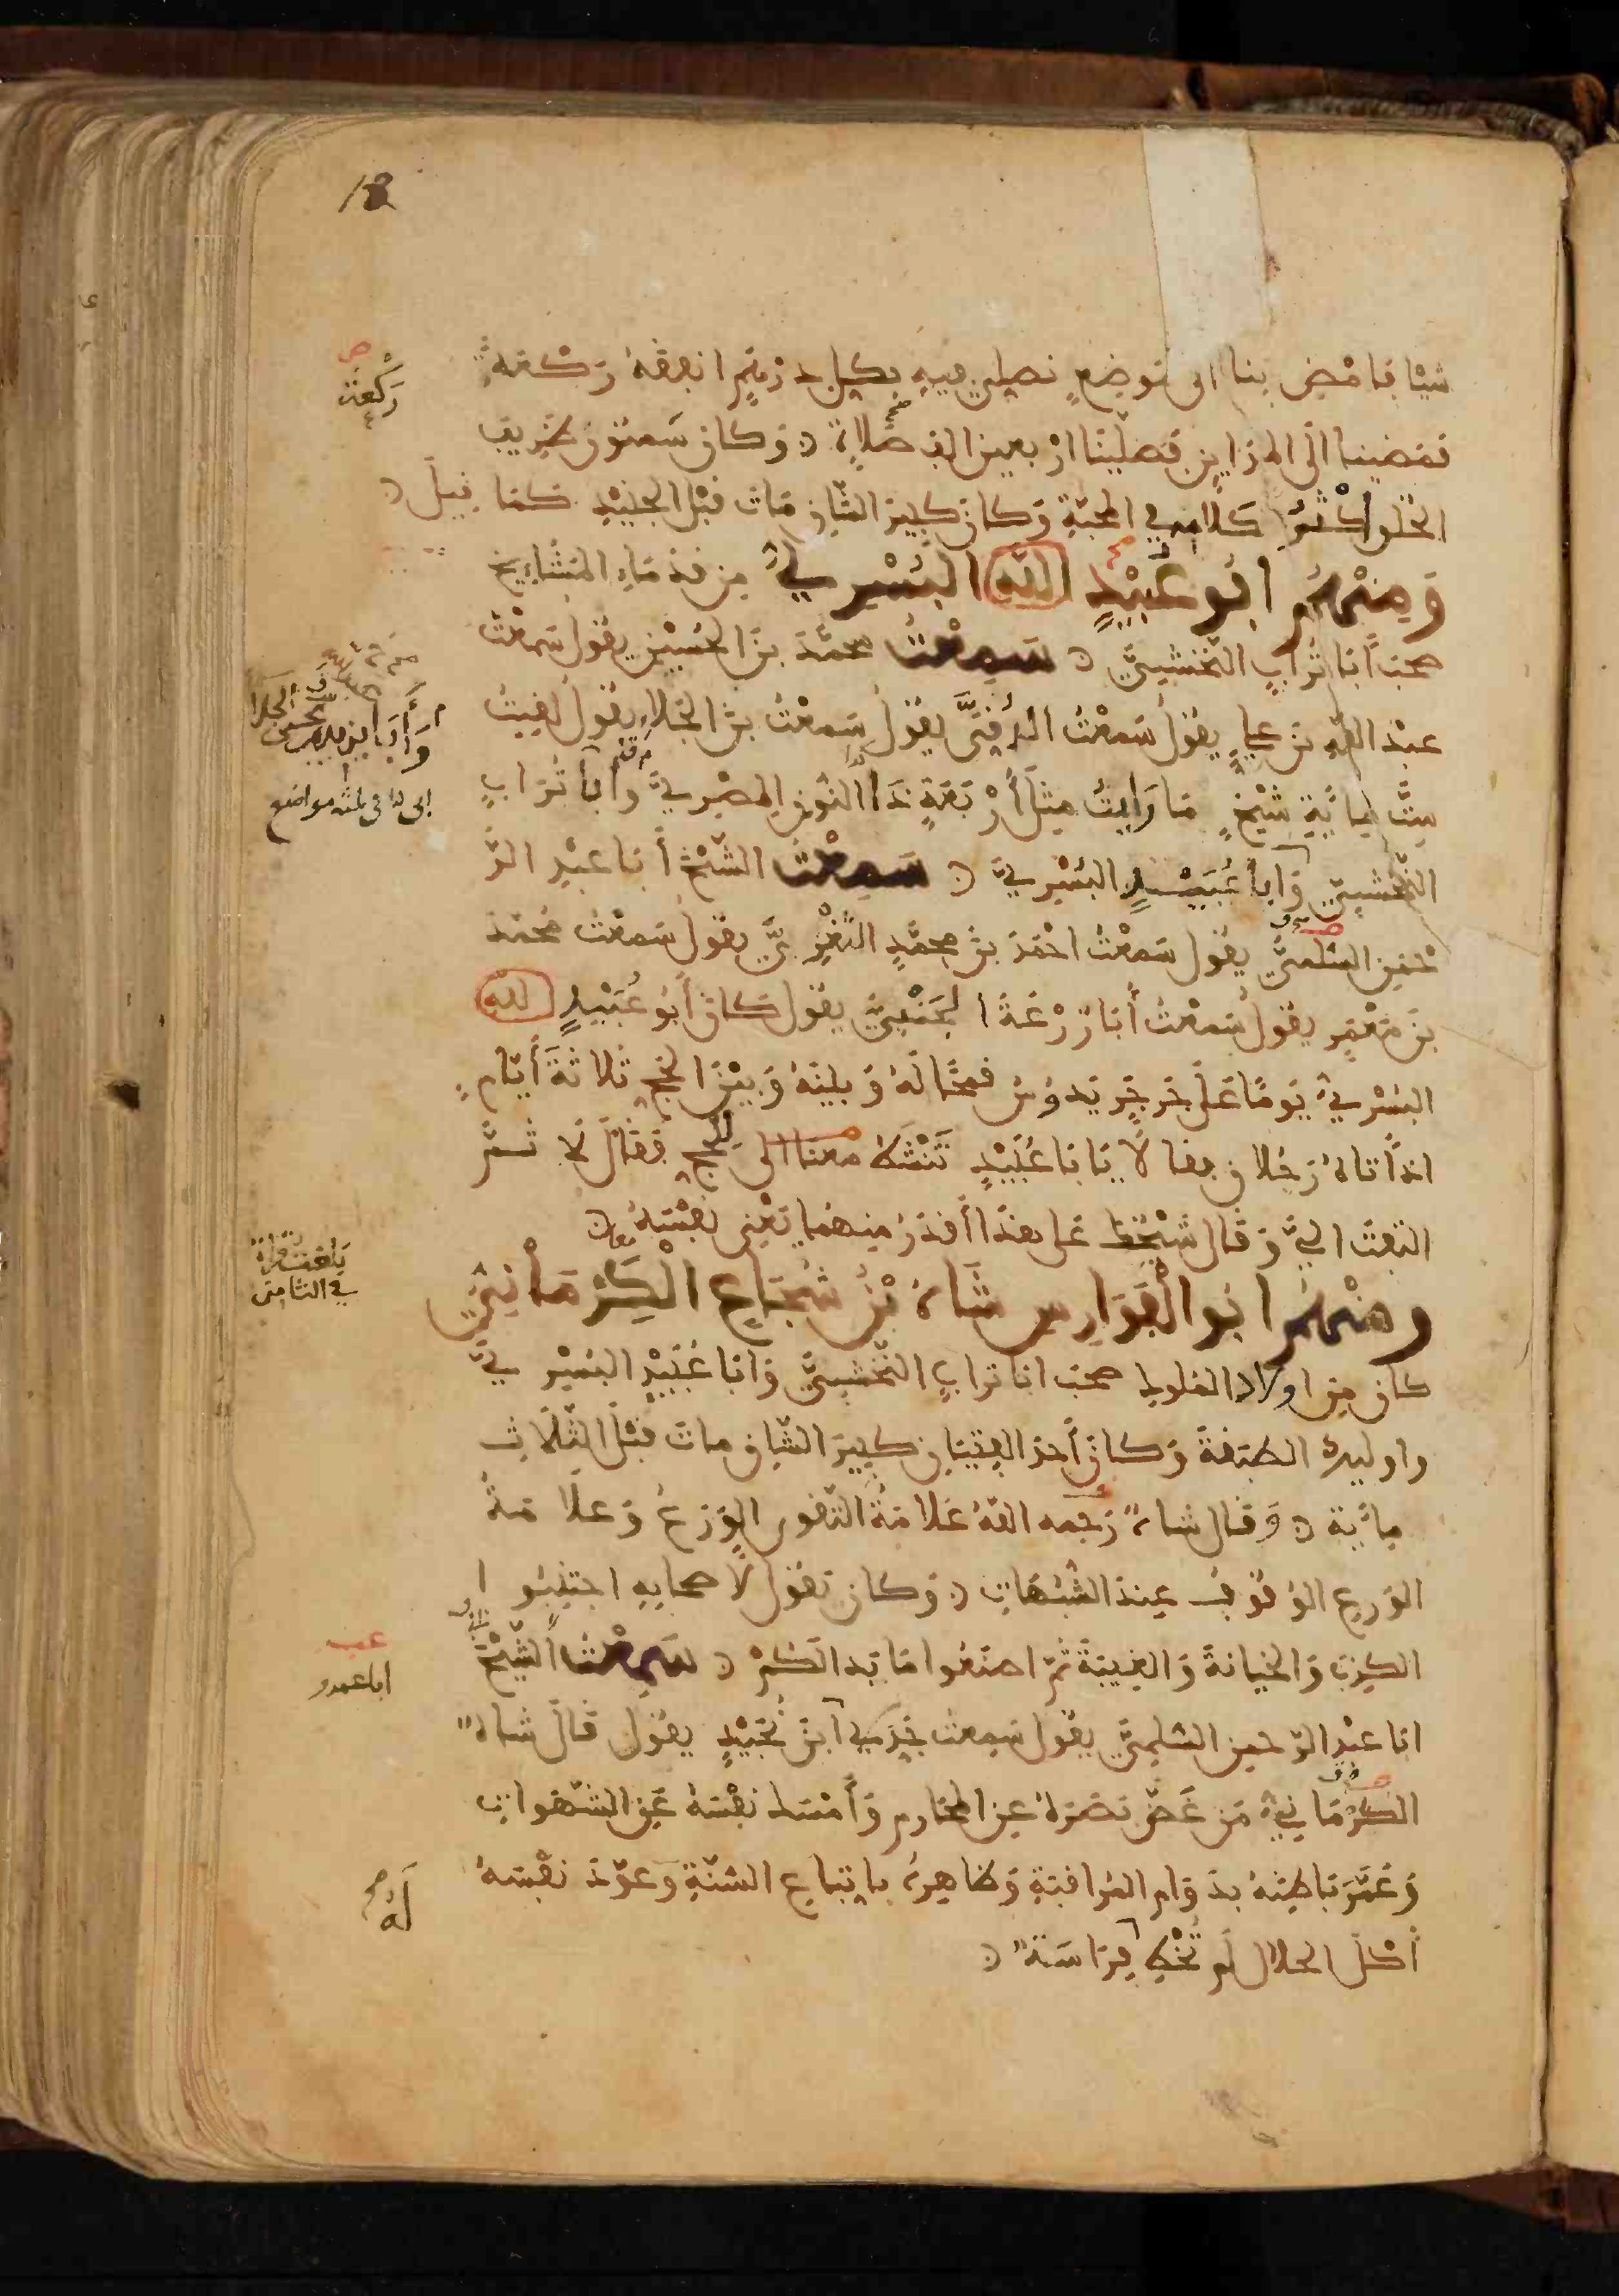 18
شيئا فامض بنا الى موضع نصلي فيه بكل درهم انفقه ركعةً
ص
ركعة
فمضينا الى المداين فصلّينا اربعين الف صلاة وكان سمنون ظريف
الخلق اكثر كلامه في المحبّة وكان كبير الشان مات قبل الجنيد كما قيل
وَمِنْهُم ابُو عُبَيْدٍ الله البُسْرِيُّ من قدماءِ المشايخ
صحب أبا تُراب النخشبيّ سَمِعْتُ محمّد بن الحُسَيْن يقول سَمِعْتُ
عبْد الله بن عليٍّ يقول سَمعْتُ الدُّقِّيَّ يقول سَمعْتُ بن الجَلاءِ يقول لقيتُ
ستَّ مِايَةِ شَيْخٍ مَا رَايتُ مِثلَ أَرْبَعَةٍ ذَا النُّونِ المِصْرِيَّ وأَبَا تُرَابٍ
الى
مواضع
النَّخْشبيَّ وَابا عُبَيْدٍ البُسْرِيَّ سَمِعْتُ الشّيْخَ أبَا عَبْدِ الرَّ
حْمَنِ السُّلَمِيَّ يقُول سَمعْتُ احْمَدَ بنَ محمَّدٍ البَغْوِيَّ يقول سَمعْتُ محمّدَ
بنَ مَعْمَرٍ يقول سَمعْتُ أَبَا زُرْعَةَ الجَنْبِيَّ يقُول كَانَ أَبُو عُبَيْدٍ الله
البُسْرِيُّ يَومًا عَلى جَرْجَرٍ يَدُوسُ قمحًا لَهُ وَبينَهُ وَبَيْنَ الحَجِّ ثَلاثَةُ أَيّامٍ
اذ أتاهُ رَجُلانِ فقالا يَا بَا عُبَيْدٍ تَنْشَطُ معنا الى الحجِّ فقالَ لا ثمّ
التفتَ اليَّ وَقال شَيْخُك على هذا أقدرُ منهما يَعْنِي نفْسَهُ
بلغت قراءة
في الثامن
ومنهُم ابو الفَوَارِسِ شَاهُ بْنُ شُجَاعٍ الْكِرْمَانِيُّ
كان من اولاد الملوك صحب ابا ترابٍ النَّخْشَبِيَّ وَابا عُبَيْدٍ البُسْرِيَّ
واوليك الطبقةَ وَكان أحدَ الفتيانِ كبيرَ الشّانِ ماتَ قبْلَ الثّلاث
مايَة وَقال شاهٌ رَحمه اللهُ عَلامَةُ التّقوى الورَعُ وَعلامَةُ
الوَرعِ الوُقُوفُ عندَ الشُّبُهَاتِ وَكان يَقُول لاصحابِه اجتنِبُوا
الكذبَ وَالخيانةَ وَالغِيبَةَ ثمّ اصنَعُوا مَا بَدا لَكُمْ سَمِعْتُ الشّيْخَ
ابا عمرو
ابا عبْدِ الرّحمنِ السُّلمِيَّ يقُول سَمِعتُ جَدّي ابنَ نُجَيْدٍ يقُول قالَ شاهٌ
الكِرْمَانِيُّ مَن غَضّ بَصَرَهُ عن المحَارِم وَأَمْسَكَ نفْسَهُ عَنِ الشّهَوَاتِ
وَعَمَّرَ بَاطنَهُ بدَوَامِ المُراقبَةِ وَظاهِرَهُ باتِّباع السُّنَّةِ وَعوّدَ نفْسَهُ
أكْلَ الحَلالِ لَم تُخْطِ فِرَاسَة
لَهُ